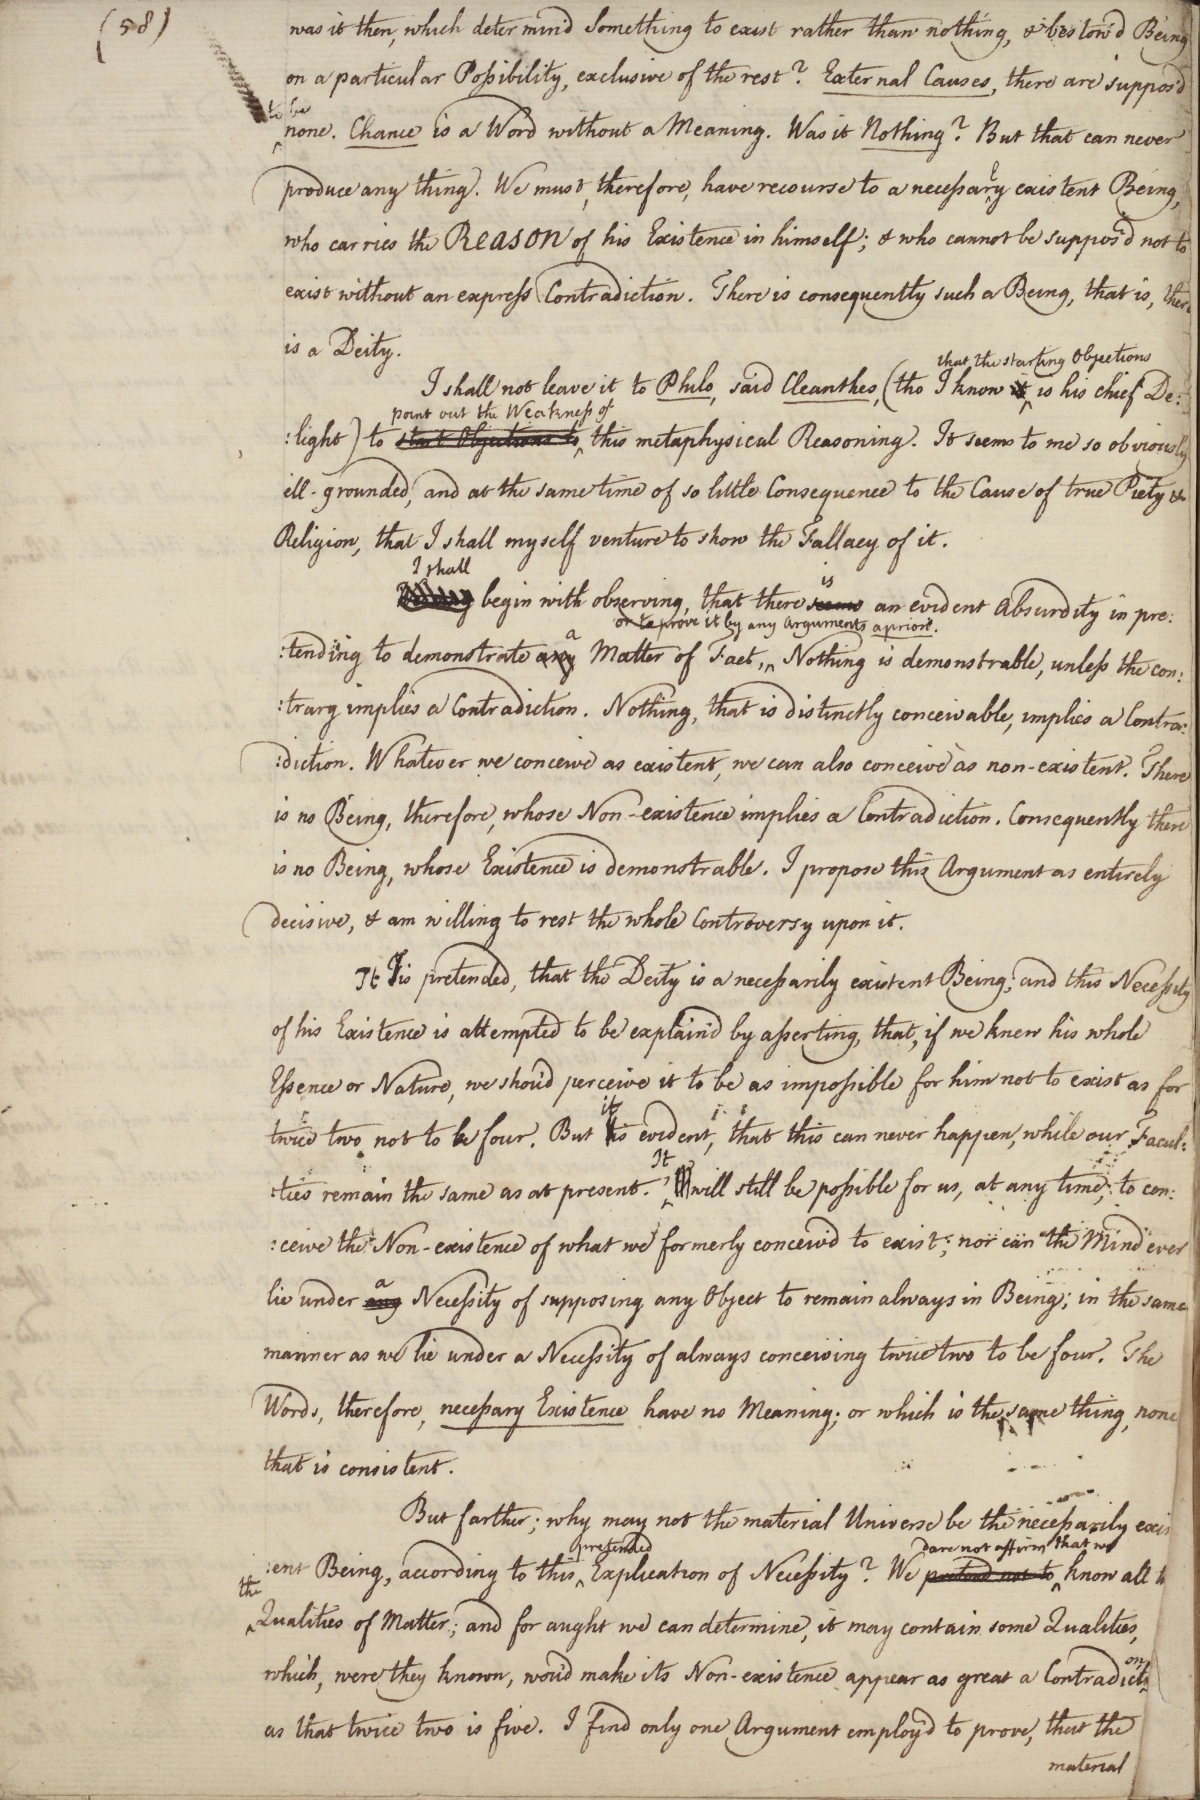 (58)
was it then, which determin'd Something to exist rather than nothing, & bestow'd Being
on a particular Possibility, exclusive of the rest? External Causes, there are suppos'd
to be
none. Chance is a Word without a Meaning. Was it Nothing? But that can never
produce any thing. We must, therefore, have recourse to a necessary existent Being,
who carries the REASON of his Existence in himself; & who cannot be suppos'd not to
exist without an express Contradiction. There is consequently such a Being, that is, there
is a Deity.
that the starting Objections
I shall not leave it to Philo, said Cleanthes, (tho I know it is his chief De:
point out the Weakness of
:light) to start Objections to this metaphysical Reasoning. It seems to me so obviously
ill-grounded, and at the same time of so little Consequence to the Cause of true Piety &
Religion, that I shall myself venture to show the Fallacy of it.
I shall
is
begin with observing, that there seems an evident Absurdity in pre:
or to prove it by any Arguments a priori.
a
:tending to demonstrate any Matter of Fact, Nothing is demonstrable, unless the con:
:trary implies a Contradiction. Nothing, that is distinctly conceivable, implies a Contra:
:diction. Whatever we conceive as existent, we can also conceive as non-existent. There
is no Being, therefore, whose Non-existence implies a Contradiction. Consequently there
is no Being, whose Existence is demonstrable. I propose this Argument as entirely
decisive, & am willing to rest the whole Controversy upon it.
It is pretended, that the Deity is a necessarily existent Being; and this Necessity
of his Existence is attempted to be explain'd by asserting, that, if we knew his whole
Essence or Nature, we shou'd perceive it to be as impossible for him not to exist as for
it
twice two not to be four. But is evident, that this can never happen, while our Facul:
It
:ties remain the same as at present. will still be possible for us, at any time, to con:
:ceive the Non-existence of what we formerly conceiv'd to exist; nor can the Mind ever
a
lie under any Necessity of supposing any Object to remain always in Being; in the same
manner as we lie under a Necessity of always conceiving twice two to be four. The
Words, therefore, necessary Existence have no Meaning; or which is the same thing, none
that is consistent.
But farther; why may not the material Universe be the necessarily exis
pretended
dare not affirm that we
:ent Being, according to this Explication of Necessity? We pretend not to know all t
the
Qualities of Matter; and for aught we can determine, it may contain some Qualities,
on
which, were they known, wou'd make its Non-existence appear as great a Contradicti
as that twice two is five. I find only one Argument employ'd to prove, that the
material